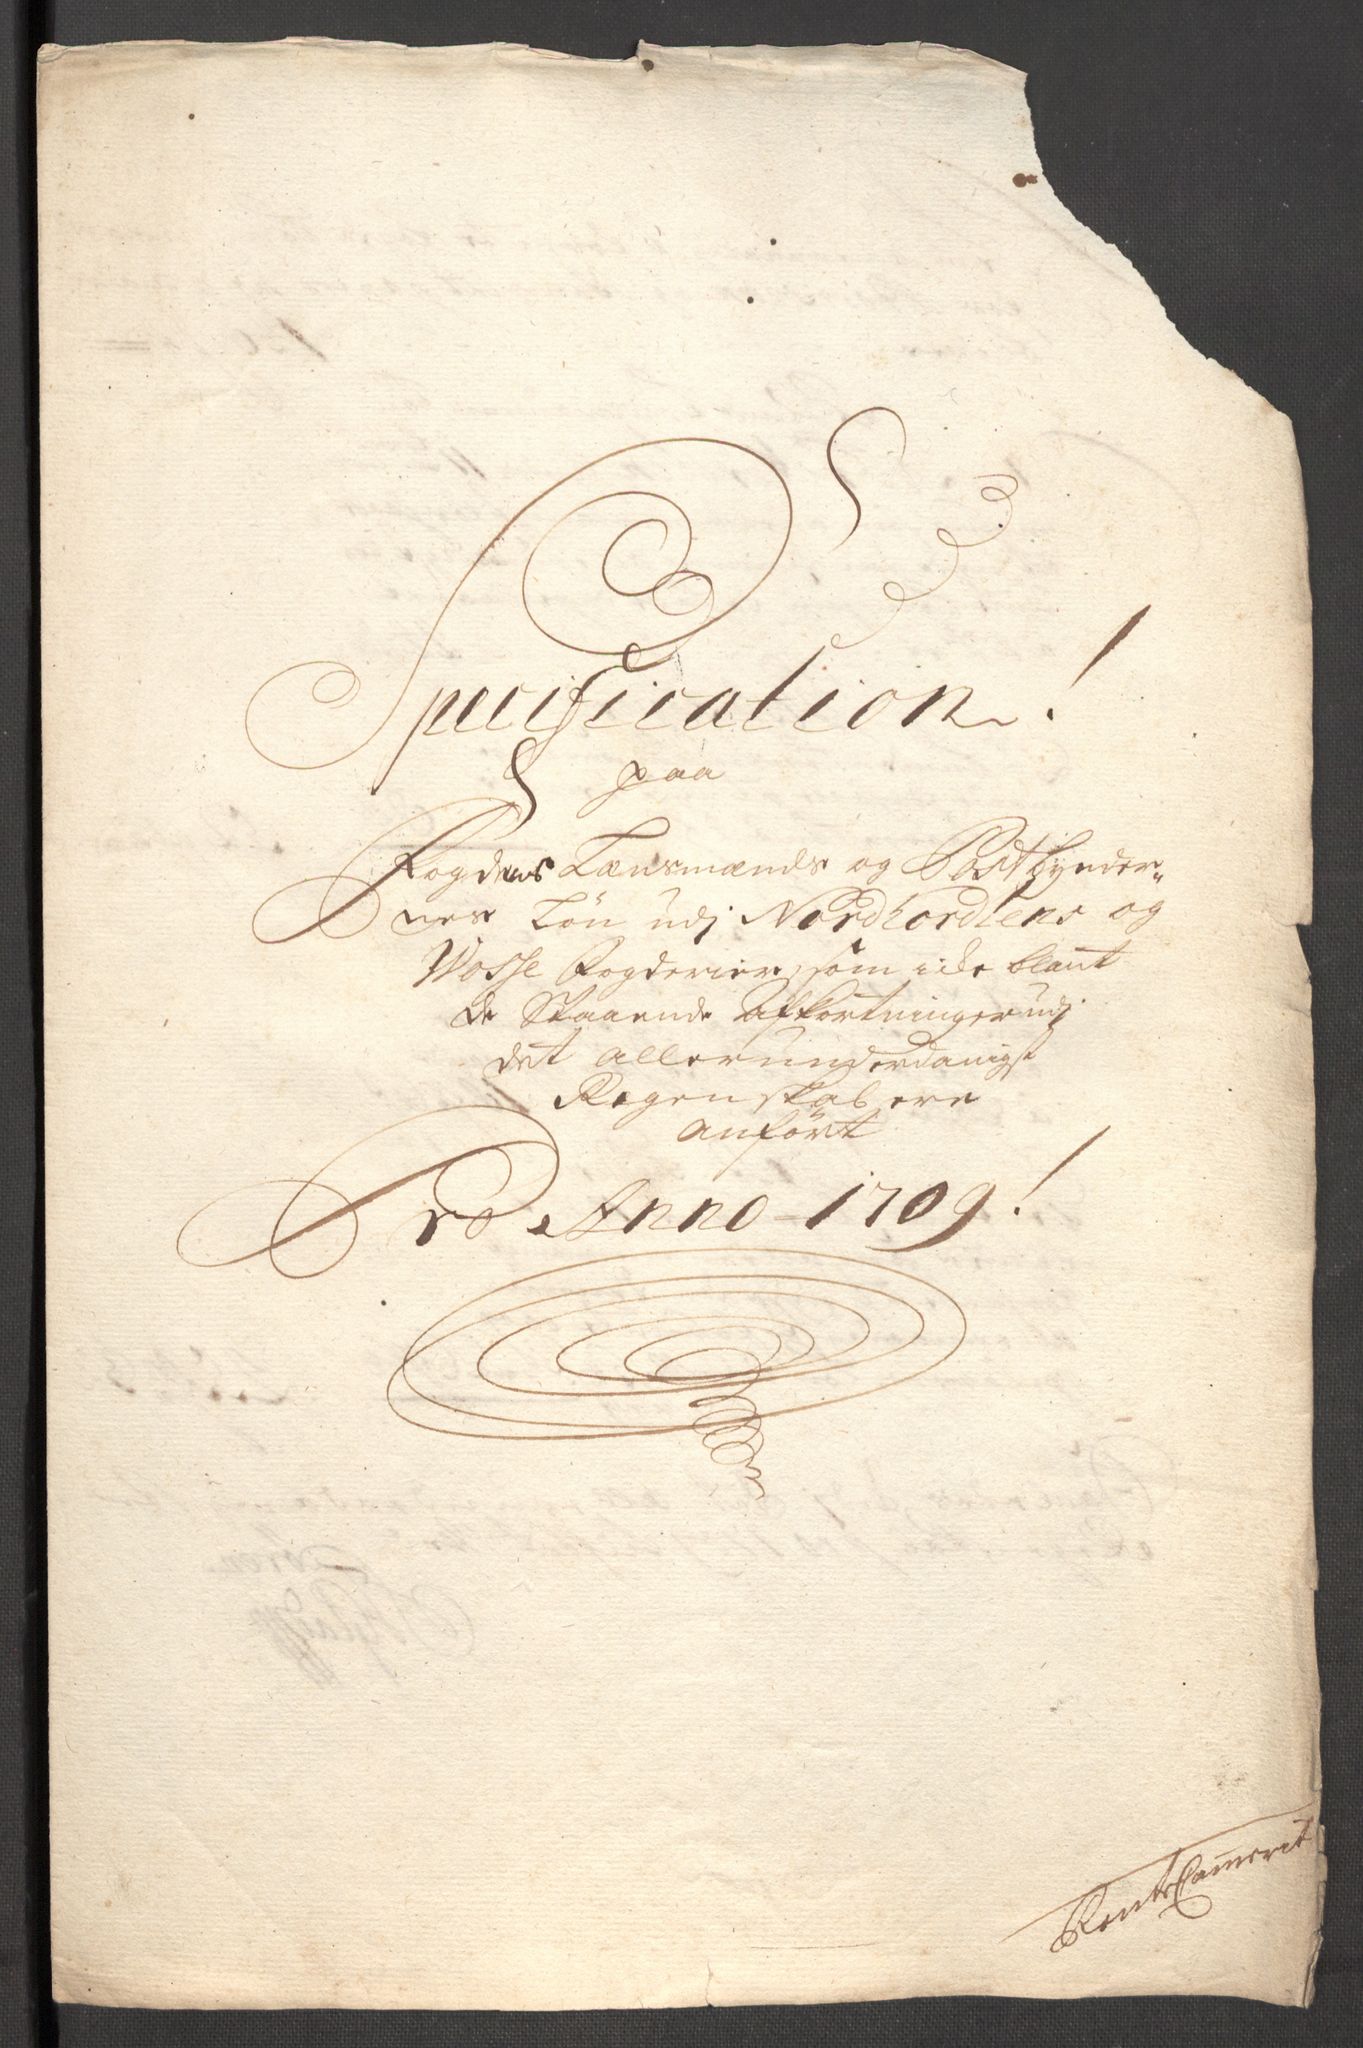 Specification!
paa
Fogdens Lænsmænds og Postbynder-
nes Løn udj Nordhordlens og
Wosse Fogderier, som i de blant
de Staaende Afkortninger udj
det allerunderdanigst
Regenskab ere
anført
Pro Anno 1709!
RenteCammerit